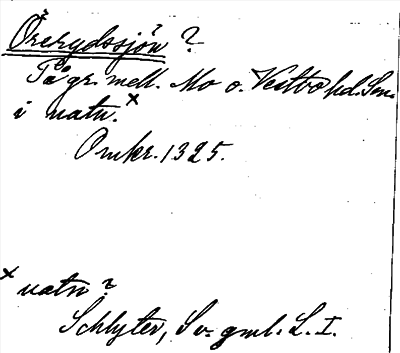 Örerydssjön ?
På gr. mell. Mo o. Vestbo hd. Sm.
i vatn. x
Omkr. 1325.
x vatn ?
Schlyter, Sv. gml. L. I.